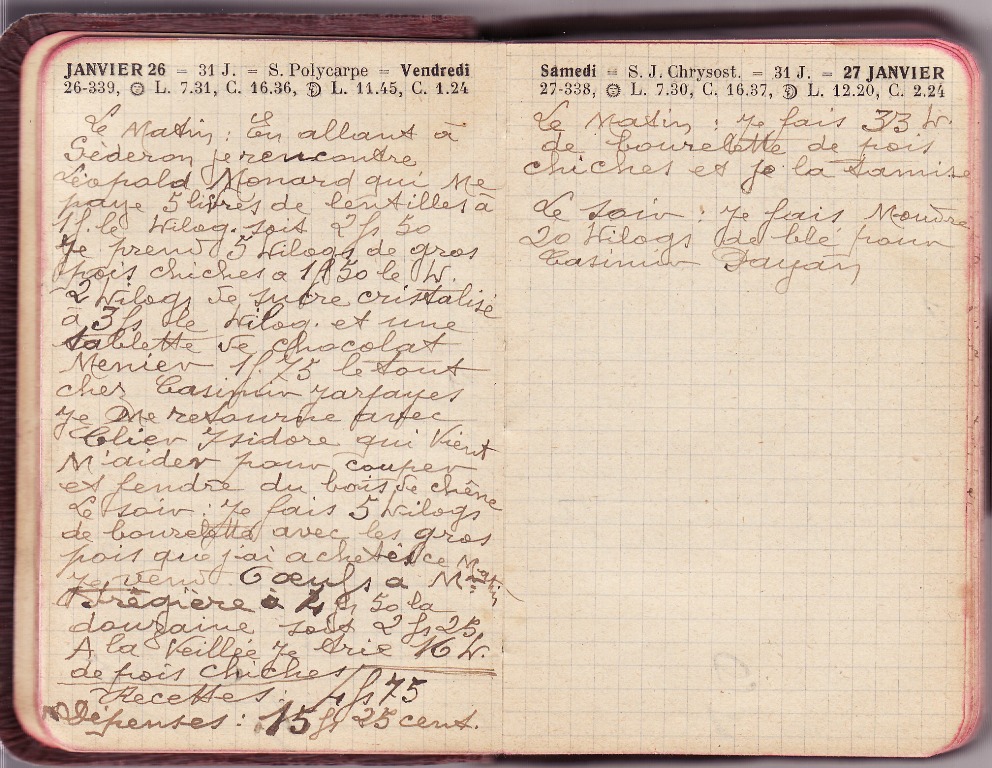 JANVIER 26 = 31 J. = S. Polycarpe = Vendredi
26-339, L. 7.31, C. 16.36, L. 11.45, C. 1.24
Le Matin : En allant à
Séderon je rencontre
Léopold Monard qui Me
paye 5 livres de lentilles à
1f. le Kilog. soit 2fs 50
Je prend 5 Kilogs de gros
pois chiches a 1f 50 le K.
2 Kilogs de sucre cristalisé
à 3fs le Kilog. et une
tablette de chocolat
Menier 1f.75 le tout
chez Casimir Jarjayes
Je Me retourne avec
Isidore qui Vient
M'aider pour couper
et fendre du bois de chêne
Le soir : Je fais 5 Kilogs
de bourelette avec les gros
pois que j'ai achetés ce Matin
Je vend 6 œufs a Mme
Trégière à 4 fs 50 la
douzaine soit 2 fs 25.
A la Veillée Je trie 16 K.
de pois chiches
Recettes : 4 fs 75
Dépenses : 15 fs 25 cent.
Samedi = S. J. Chrysost. = 31 J. = 27 JANVIER
27-338, L. 7.30, C. 16.37, L. 12.20, C. 2.24
Le Matin : Je fais 33 K.
de bourelette de pois
chiches et je la tamise
Le soir : Je fais Moudre
20 Kilogs de blé pour
Casimir Dayan